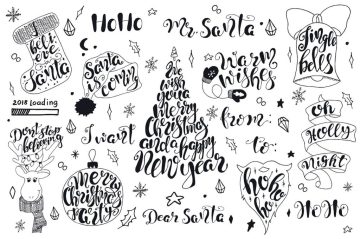 HoHo
Mr. Santa
I
beli
eve
in
Santa
Santa
is
coming
We
wish
you
a
merry
Christmas
and a happy
New year
warm
wishes
Jingle
bells
2018 loading
Don't stop
believing
I want
from:
to:
oh
Holly
Night
Merry
Christmas
Party
Dear Santa
ho ho
ho
HoHo